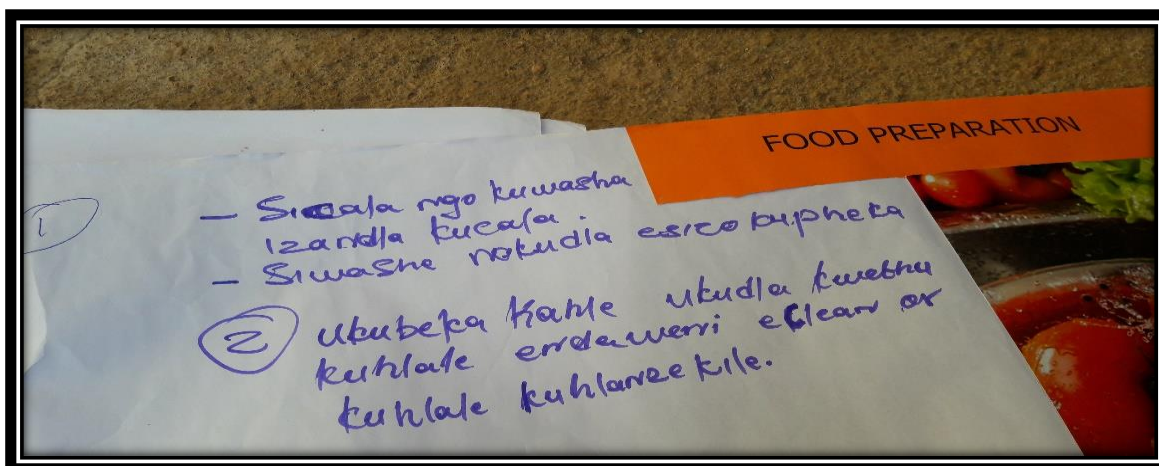 FOOD PREPARATION
1
– Sicala ngo kuwasha
izandla kucala.
– Siwashe nokudla esizo kupheka
2 Ukubeka Kahle ukudla kwethu
kuhlale endaweni eclean or
kuhlale kuhlanzekile.